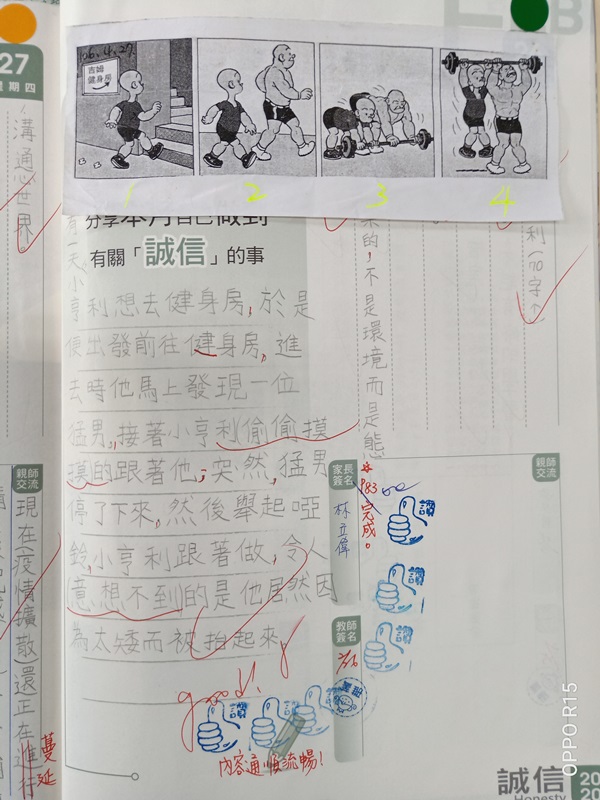 27
星期四
溝通世界
106.4.27
吉姆
健身房
1
2
3
4
B
分享本月自己做到
有關「誠信」的事
有一天小
亨利想去健身房,於是
便出發前往健身房,進
去時他馬上發現一位
猛男,接著小亨利偷偷摸
摸的跟著他;突然,猛男
停了下來,然後舉起啞
鈴,小亨利跟著做,令人
意想不到的是他居然因
為太矮而被抬起來。
的,不是環境而是態
利(70字↑)
家長
簽名
林立偉
183
完成。
親師
交流
讚
讚
讚
教師
簽名
good!
讚
讚
讚
內容通順流暢!
親師
交流
現在(疫情擴散)還正在進行
蔓延
誠信
Honesty
20
20
OPPO R15